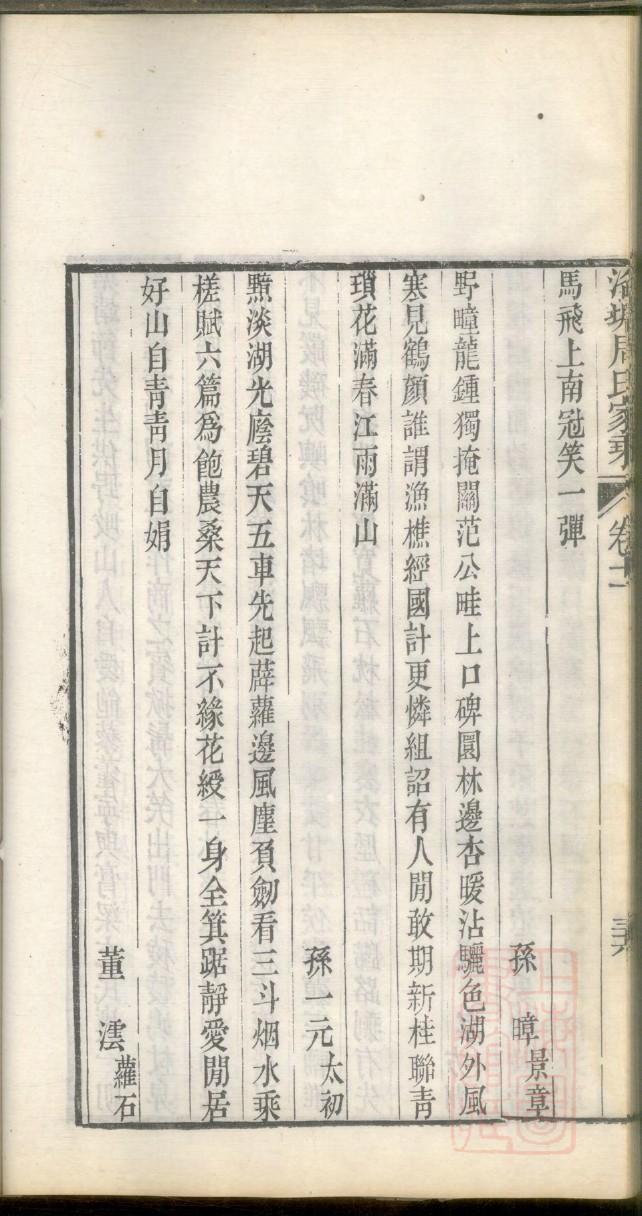 周氏家乘 卷十
馬飛上南冠笑一彈
孫 暲 景章
野疃龍鍾獨掩關范公畦上口碑圜林邊杏暖沾驪色湖外風
寒見鶴顔誰謂漁樵經國計更憐組詔有人閒敢期新桂聯青
瑣花滿春江雨滿山
孫一元 太初
黯淡湖光廕碧天五車先起薜蘿邊風塵負劒看三斗烟水乘
槎賦六篇爲飽農桑天下計不緣花綬一身全箕踞靜愛閒居
好山自青青月自娟
董 澐 蘿石